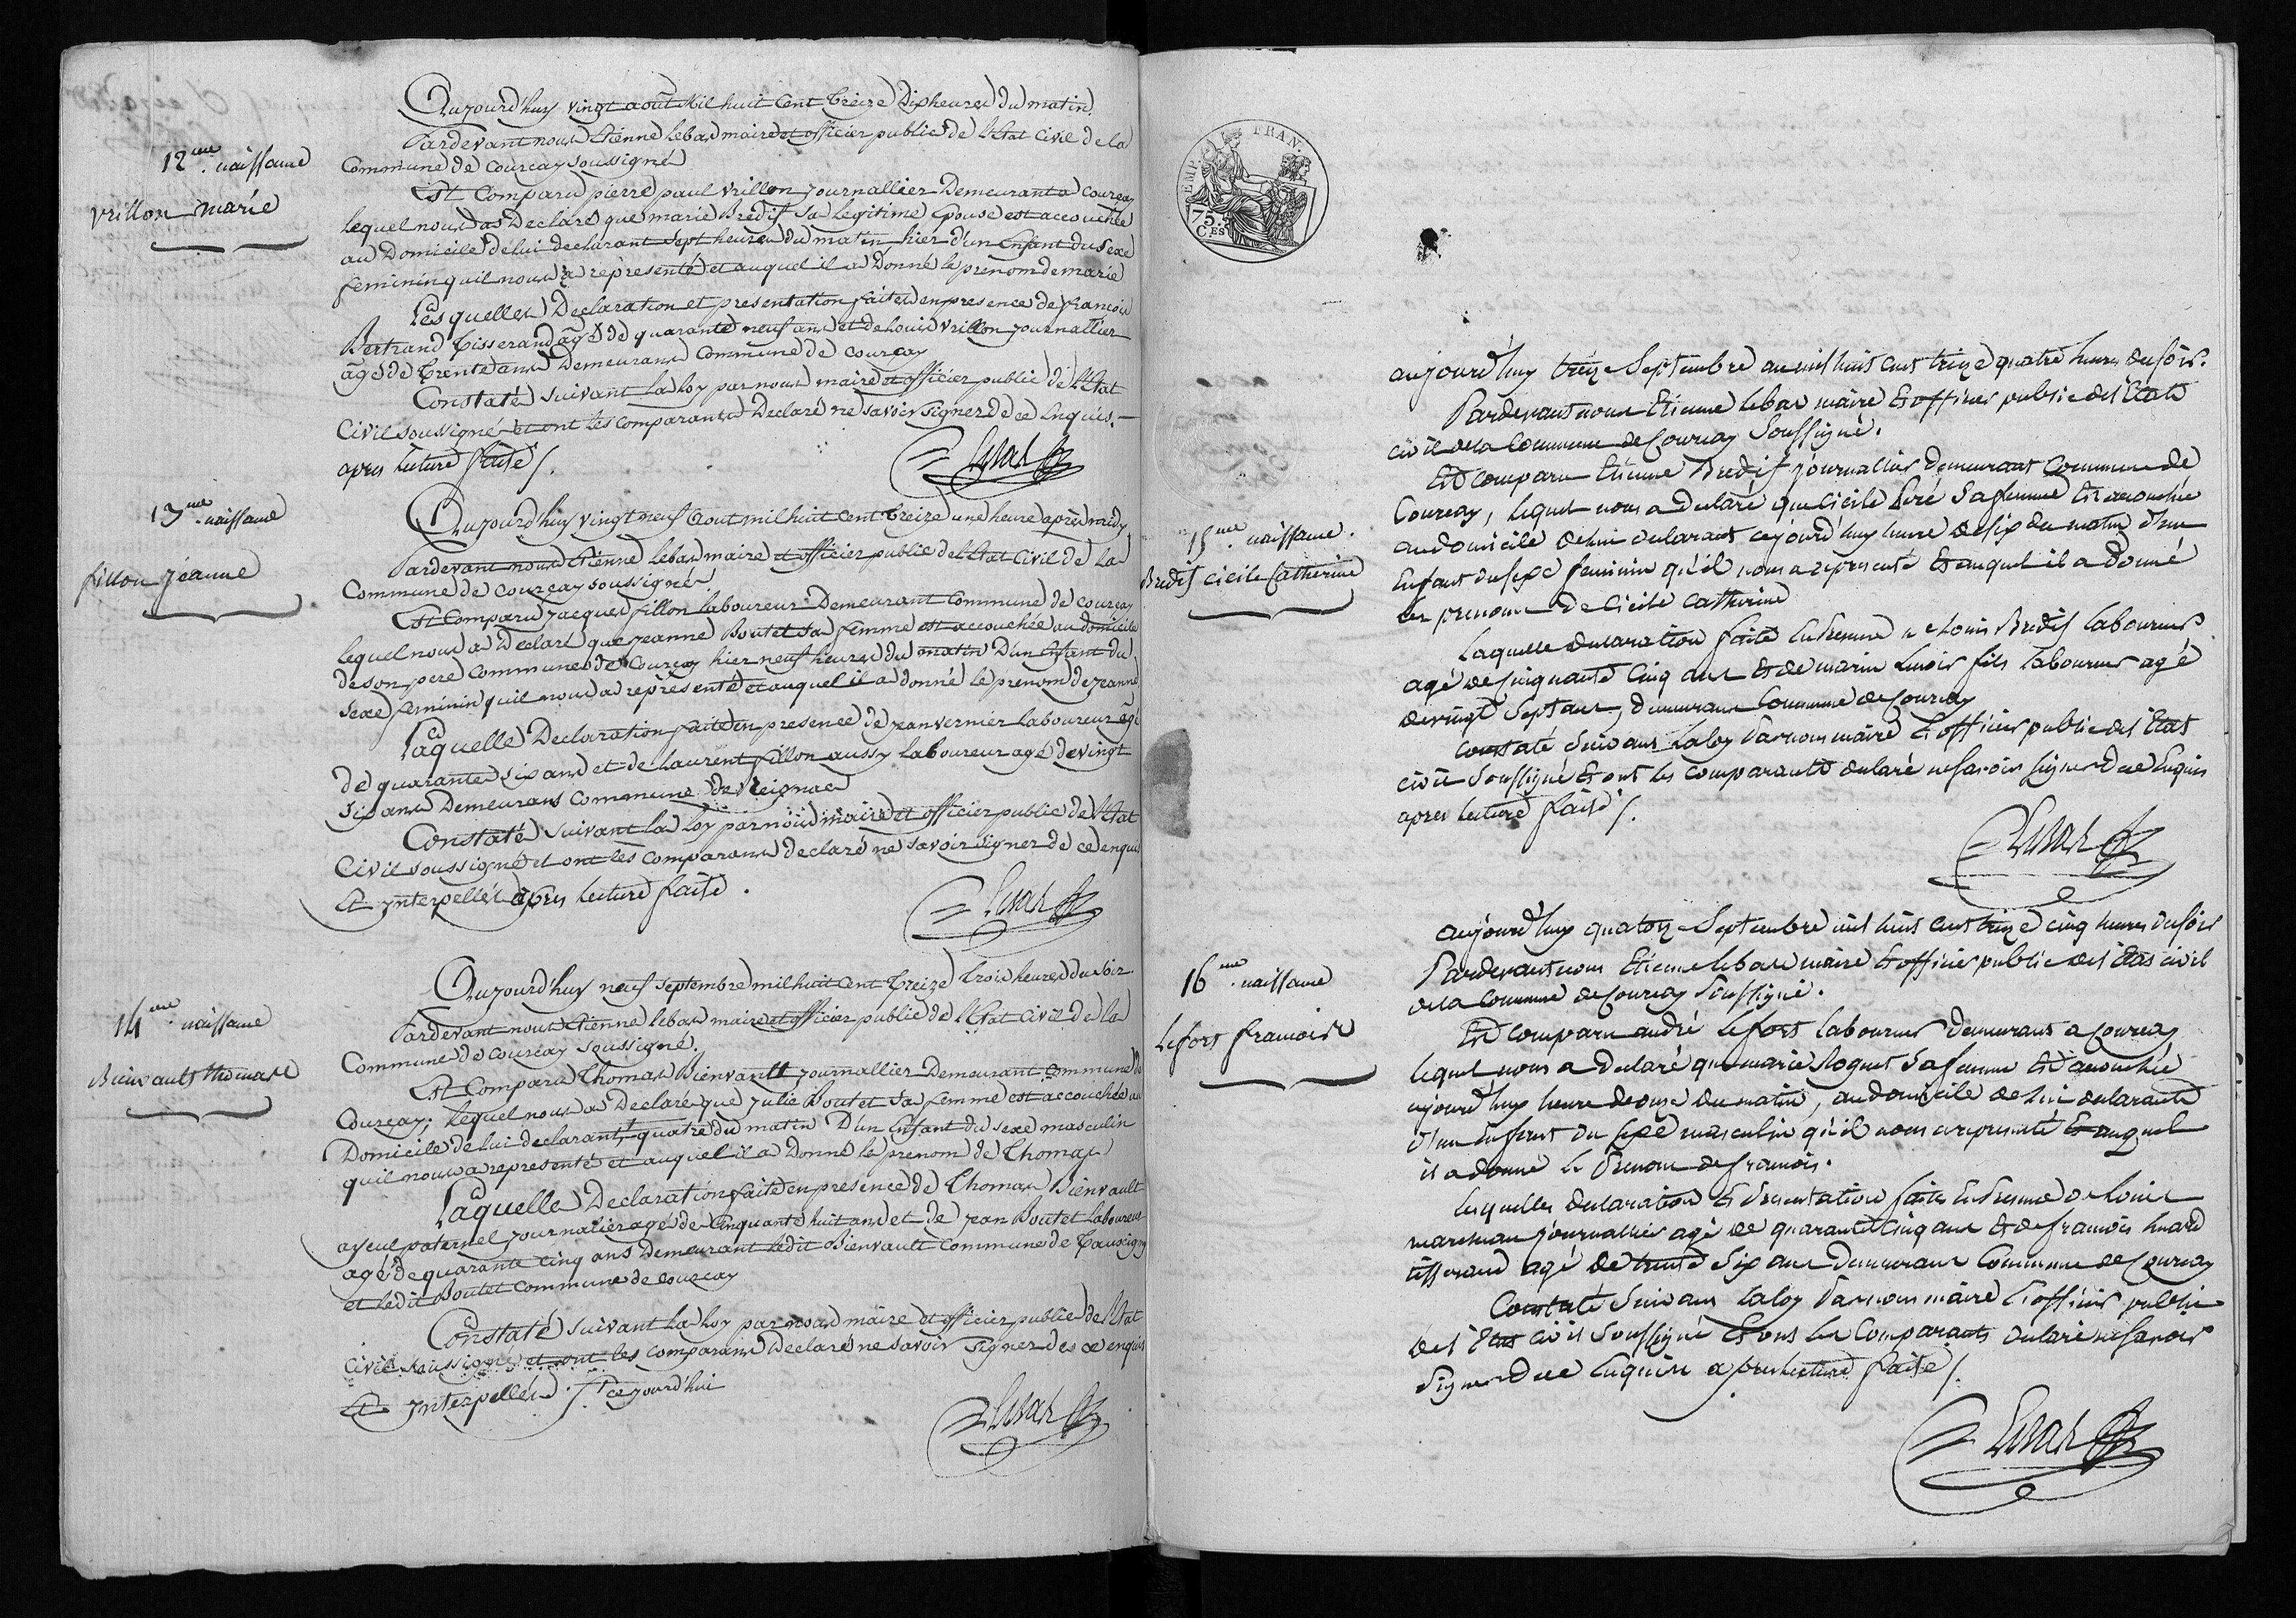 12me. naissance
vrillon marie
Aujourd'huy vingt août Mil huit Cent treize Dix heures du matin
Pardevant nous Etienne lebas maire et officier public de l'Etat Civil de la
Commune de Courcay soussigné
Est Comparu pierre paul vrillon journallier Demeurant a courcay
lequel nous a Declaré que marie Bredif sa legitime Epouse est accouchée
au Domicile de lui declarant sept heures du matin hier d'un Enfant du sexe
feminin quil nous a représenté et auquel il a Donné le prenom de marie
Lesquelles Declaration et presentation faites en presence de francois
Bertrand tisserand âgé de quarante neuf ans et de Louis vrillon journallier
âgé de trente ans Demeurans Commune de courcay
Constaté suivant la loy par nous maire et officier public de l'Etat
Civil soussigné et ont les comparants Declaré ne savoir signer de ce Enquis.
apres lecture faite /.
Lebas
13me. naissance
fillon jeanne
Aujourd'huy vingt neuf aout mil huit cent treize une heure après midy
Pardevant nous Etienne lebas maire et officier public de l'Etat Civil de la
Commune de courcay soussigné
Est Comparu jacques fillon laboureur Demeurant Commune de courcay
lequel nous a Declaré que jeanne Boutet sa femme est accouchée au domicile
de son pere commune de courcay hier neuf heures du matin D'un Enfant du
sexe feminin quil nous a représenté et auquel il a donné le prenom de jeanne
Laquelle Declaration faite en presence de jean vernier laboureur âgé
de quarante six ans et de laurent fillon aussy laboureur agé de vingt
six ans Demeurans commune de Reignac
Constaté suivant la loy par nous maire et officier public de l'Etat
Civil soussigné et ont les comparans declaré ne savoir signer de ce enquis
Et ynterpellés apres lecture faite.
Lebas
14me. naissance
Bienvault thomas
Aujourd'huy neuf septembre mil huit cent treize trois heures du soir
Pardevant nous Etienne lebas maire et officier public de l'Etat Civil de la
Commune de courcay soussigné.
Est Comparu thomas Bienvault journallier Demeurant commune de
Courcay; lequel nous a Declaré que julie Boutet sa femme est accouchée au
Domicile de lui declarant, quatre du matin D'un Enfant du sexe masculin
quil nous a representé et auquel il a Donné le prenom de thomas
Laquelle Declaration faite en presence de thomas Bienvault
ayeul paternel journalier agé de cinquante huit ans et de jean Boutet laboureur
agé de quarante cinq ans Demeurant ledit Bienvault Commune de tauxigny
et ledit Boutet Commune de courcay
Constaté suivant la loy par nous maire et officier public de l'Etat
Civil soussigné et ont les comparans Declaré ne savoir signer de ce enquis
Et ynterpellés. / ce jourd'hui
Lebas
EMP. FRAN.
75.
CES
15me. naissance.
Bredif Cicile Catherine
aujourd'huy treize Septembre an mil huit cent treize quatre heures du soir.
Pardevant nous Etienne lebas maire Et officier public de l'Etat
civil de la Commune de Courcay Soussigné.
Est comparu Etienne Bredif journalier demeurant Commune de
Courcay, lequel nous a declaré que Cicile Sa femme Est accouchée
au domicile de lui declarant cejourd'huy heure de six du matin d'un
Enfant du sexe feminin qu'il nous a representé Et auquel il a donné
les prenoms de Cicile Catherine
Laquelle declaration faite En Presence de Louis Bredif laboureur
agé de Cinquante Cinq ans Et de marin fils laboureur agé
de vingt Sept ans, demeurans Commune de Courcay
Constaté Suivant la loy Par nous maire Et officier public de l'Etat
civil Soussigné Et ont les comparants declaré ne Savoir signer de ce Enquis
apres lecture faite /.
Lebas
16me. naissance
Lefort francois
aujourd'huy quatorze Septembre mil huit cent treize cinq heures du soir
Pardevant nous Etienne lebas maire Et officier public de l'Etat civil
de la Commune de Courcay Soussigné.
Est comparu andré Lefort laboureur demeurant a Courcay
lequel nous a declaré que marie Sa femme Est accouchée
aujourd'huy heure de onze du matin, au domicile de lui declarant
d'un Enfant du sexe masculin qu'il nous a representé Et auquel
il a donné le Prenom de francois.
Lesquelles declaration Et Presentation faites En Presence de Louis
marchau journallier agé de quarante Cinq ans Et de francois huard
tisserand agé de trente Six ans Demeurans Commune de Courcay
Constaté Suivant la loy Par nous maire Et officier public
de l'Etat civil Soussigné Et ont les Comparants declaré ne Savoir
Signer de ce Enquis apres lecture faite /.
Lebas